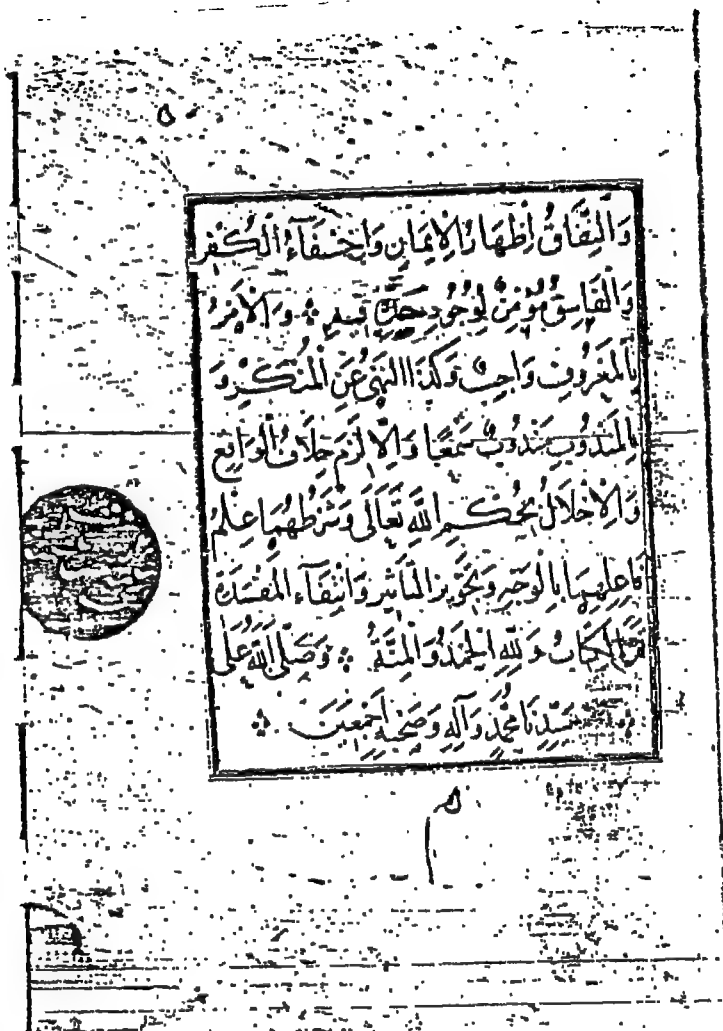 وَالنِّفَاقُ إِظْهَارُ الْإِيمَانِ وَإِخْفَآءُ الْكُفْرِ
وَالْفَاسِقُ مُؤْمِنٌ لِوُجُودِ حَدِّهِ فِيهِ ۞ وَالْأَمْرُ
بِالْمَعْرُوفِ وَاجِبٌ وَكَذَا النَّهْيُ عَنِ الْمُنْكَرِ وَ
بِالْمَنْدُوبِ مَنْدُوبٌ سَمْعًا وَإِلَّا لَزِمَ خِلَافُ الْوَاقِعِ
وَالْإِخْلَالُ بِحُكْمِ اللَّهِ تَعَالَى وَشَرْطُهُمَا عِلْمُ
فَاعِلِهِمَا بِالْوَجْهِ وَتَجْوِيزُ التَّأْثِيرِ وَانْتِفَآءُ الْمَفْسَدَةِ
تَمَّ الْكِتَابُ وَلِلَّهِ الْحَمْدُ وَالْمِنَّةُ ۞ وَصَلَّى اللَّهُ عَلَى
سَيِّدِنَا مُحَمَّدٍ وَآلِهِ وَصَحْبِهِ أَجْمَعِينَ ۞